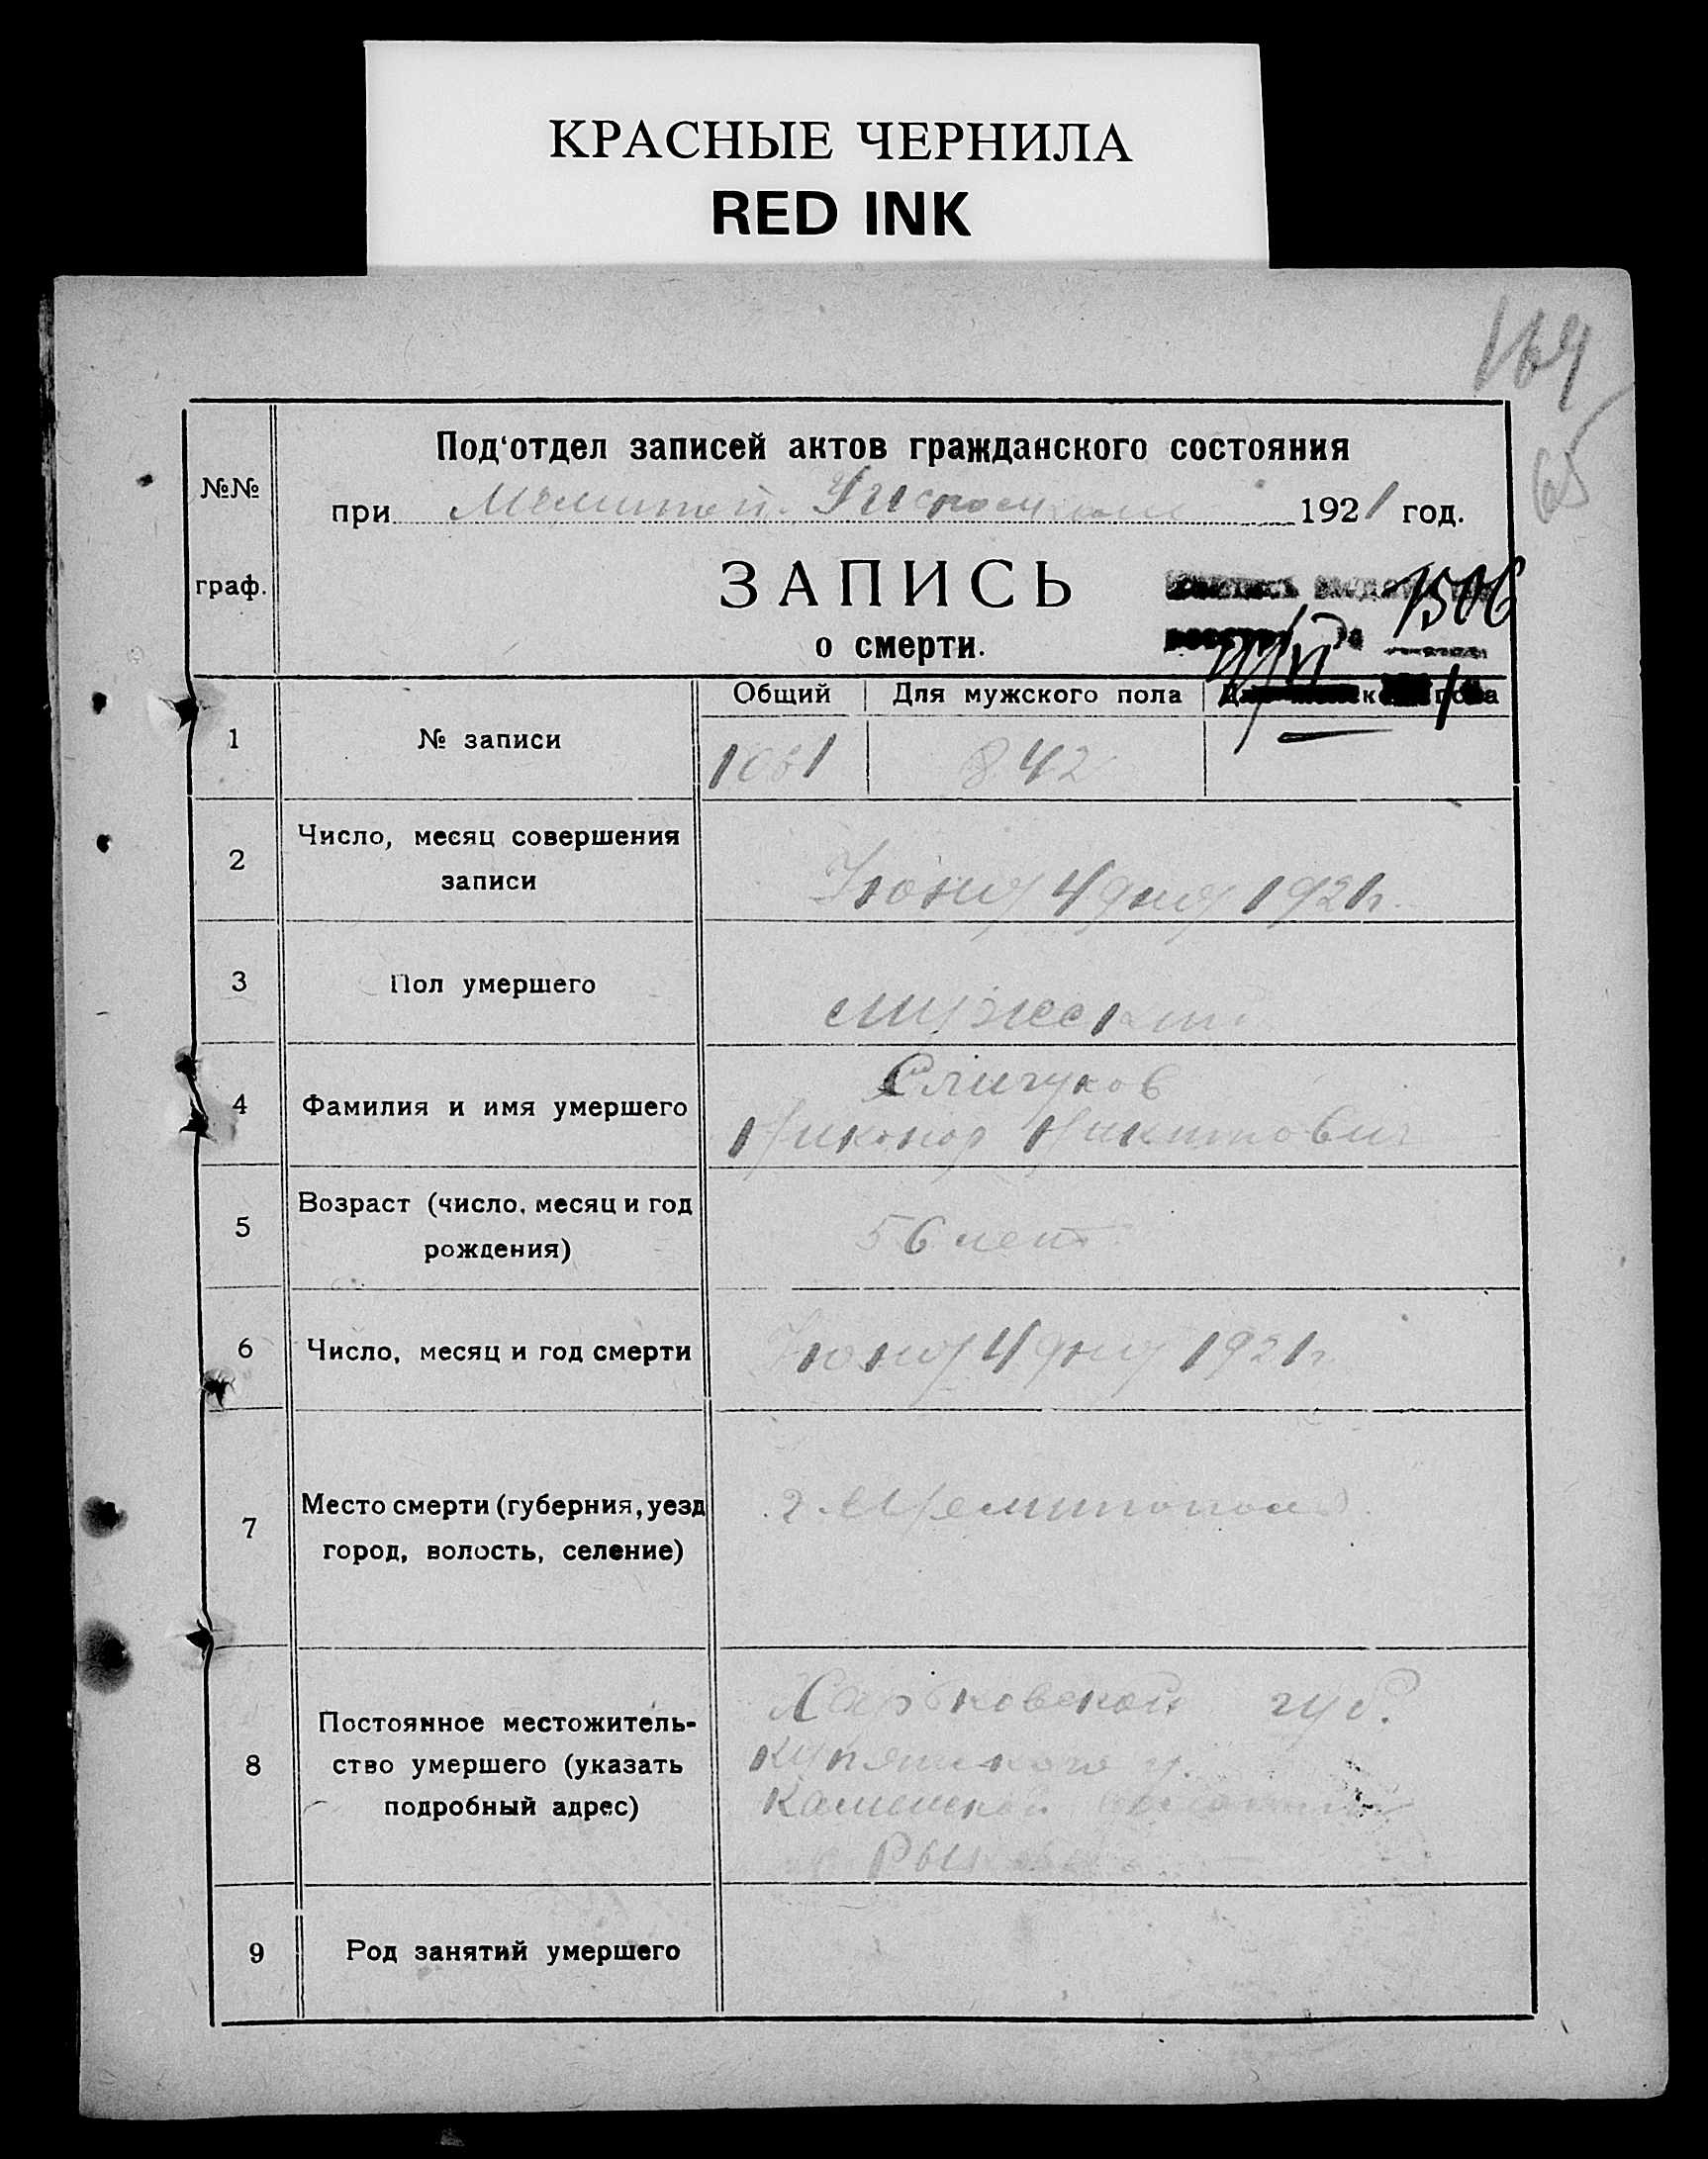 КРАСНЫЕ ЧЕРНИЛА
RED INK
164
65
Под‘отдел записей актов гражданского состояния
№№
при Мелитоп. Уисполкоме 1921 год.
граф.
ЗАПИСЬ
1506
о смерти.
Общий Для мужского пола пола
1 № записи 1061 842
2 Число, месяц совершения
записи Июня 4 дня 1921 г.
3 Пол умершего мужской
4 Фамилия и имя умершего
Никонор Никитович
5 Возраст (число, месяц и год
рождения) 56 лет
6 Число, месяц и год смерти Июня 4 дня 1921 г.
7 Место смерти (губерния, уезд
город, волость, селение)
г. Мелитополь
8 Постоянное местожитель-
ство умершего (указать
подробный адрес)
Харьковской губ.
Купянского у.
Каменской волости
9 Род занятий умершего